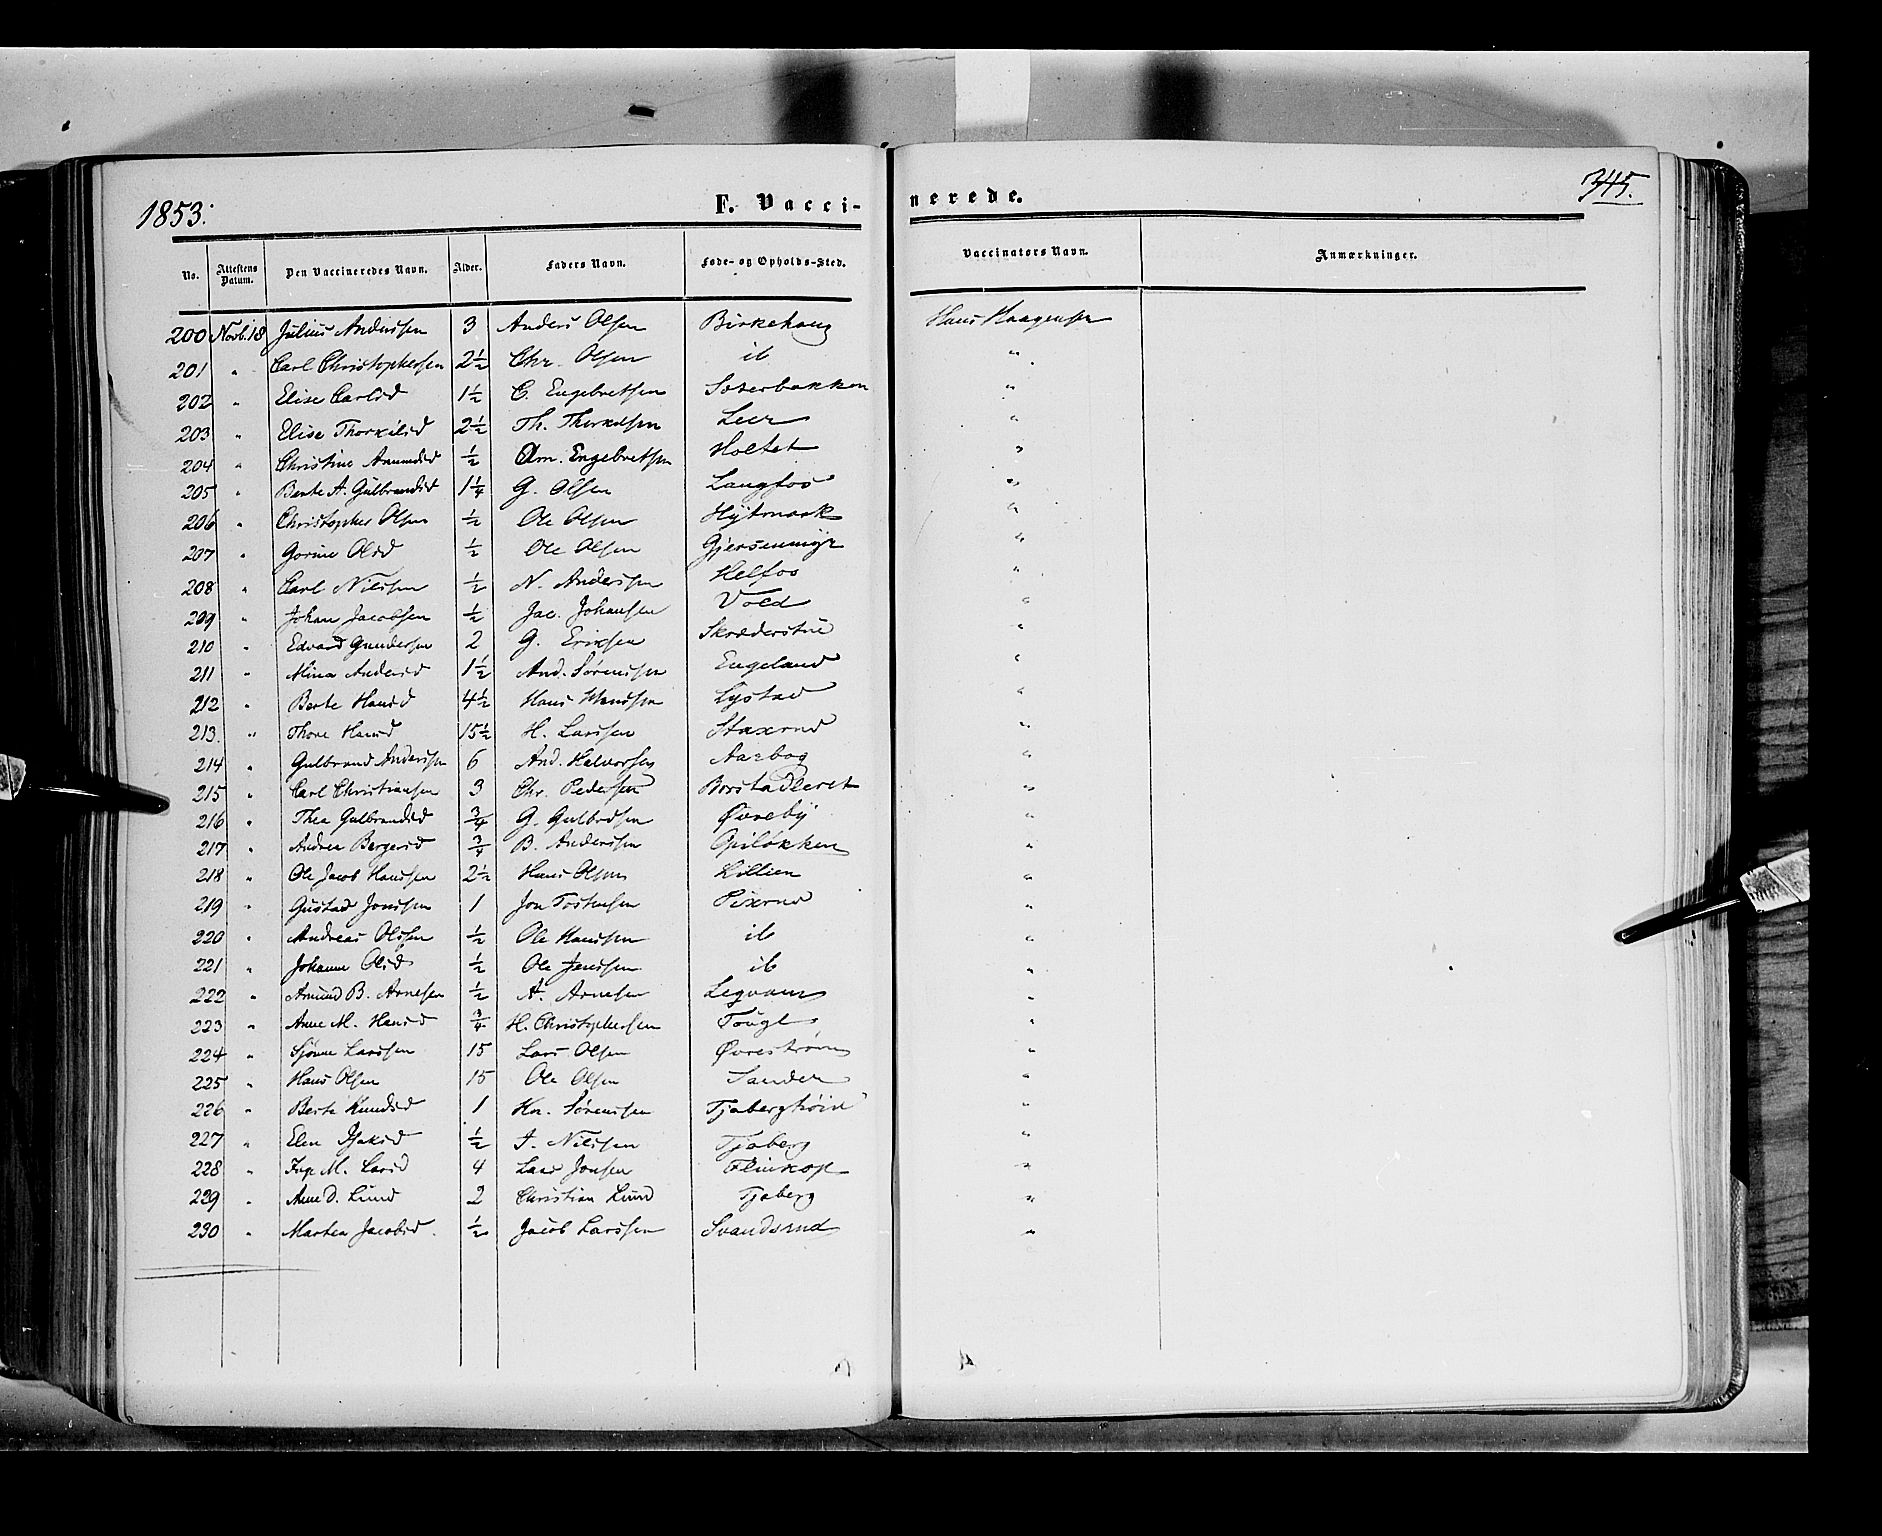 1853.
F. Vaccinerede.
345.
No. Attestens Datum. Den Vaccineredes Navn. Alder. Faders Navn. Føde- og Opholds-Sted. Vaccinators Navn. Anmærkninger.
200 Novb. 18 Julius Anderssen 3 Anders Olsen Birkehaug Hans Haagensen
201 " Carl Christophersen 2½ Chr. Olsen ib "
202 " Elise Carlsd 1½ C. Engebretsen Sæterbakken "
203 " Elise Thorkilsd 2½ Th. Thorkilsen Leer "
204 " Christine Amundsd ½ Am. Engebretsen Holtet "
205 " Berte A. Gulbrandsd 1¼ G. Olsen Langfos "
206 " Christopher Olsen ½ Ole Olsen Hytmark "
207 " Gorine Olsd ½ Ole Olsen Gjersenmyr "
208 " Carl Nilssen ½ N. Anderssen Helfos "
209 " Johan Jacobsen ½ Jac. Johansen Vold "
210 " Edvard Gundersen 2 G. Eriksen Skrædderstue "
211 " Mina Andersd 1½ And. Sørenssen Engeland "
212 " Berte Hansd 4½ Hans Hanssen Lystad "
213. " Thore Hansd 15½ H. Larssen Staxrud "
214 " Gulbrand Anderssen 6 And. Halvorsen Aarbog "
215 " Carl Christiansen 3 Chr. Pedersen Borstadleret "
216 " Thea Gulbrandsd ¾ G. Gulbrdsen Øvreby "
217 " Andrea Bergersd ¾ B. Anderssen Opiløkken "
218 " Ole Jacob Hanssen 2½ Hans Olsen Lillien "
219 " Gustav Jonssen 1 Jon Tostensen Sixrud "
220 " Andreas Olssen ½ Ole Hanssen ib "
221 " Johanne Olsd ½ Ole Jenssen ib "
222 " Amund B. Arnesen ½ A. Arnesen Legvam "
223 " Anne M. Hansd ¾ H. Christophersen Fougl "
224 " Larssen 15 Lars Olsen Øvrestrøm "
225 " Hans Olsen 15 Ole Olsen Sander "
226 " Berte Knudsd 1 Kn. Sørenssen "
227 " Elen Isaksd ½ I. Nilssen Tjaberg "
228 " Ing. M. Larsd 4 Lars Jonsen "
229 " Anne D. Lund 2 Christian Lund Tjaberg "
230 " Marthea Jacobsd. ½ Jacob Larssen Svandsrud "